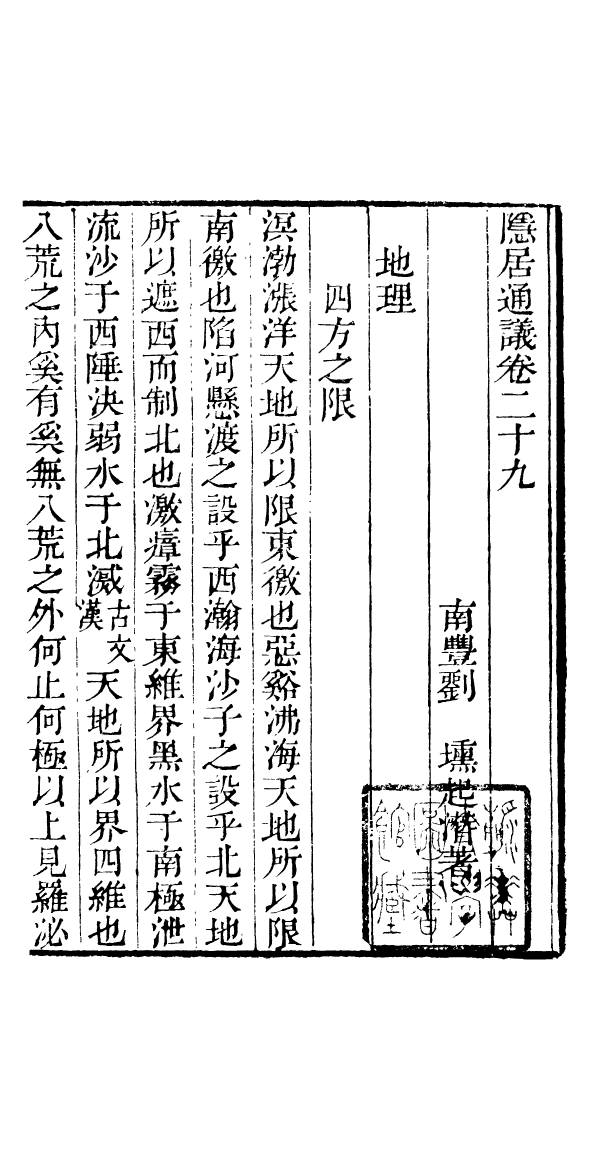 隱居通議卷二十九
南豐劉　壎起潛著
地理
四方之限
溟渤漲洋天地所以限東徼也惡谿沸海天地所以限
南徼也陷河懸渡之設乎西瀚海沙子之設乎北天地
所以遮西而制北也激瘴霧于東維界黑水于南極泄
流沙于西陲決弱水于北滅古文漢天地所以界四維也
八荒之內奚有奚無八荒之外何止何極以上見羅泌